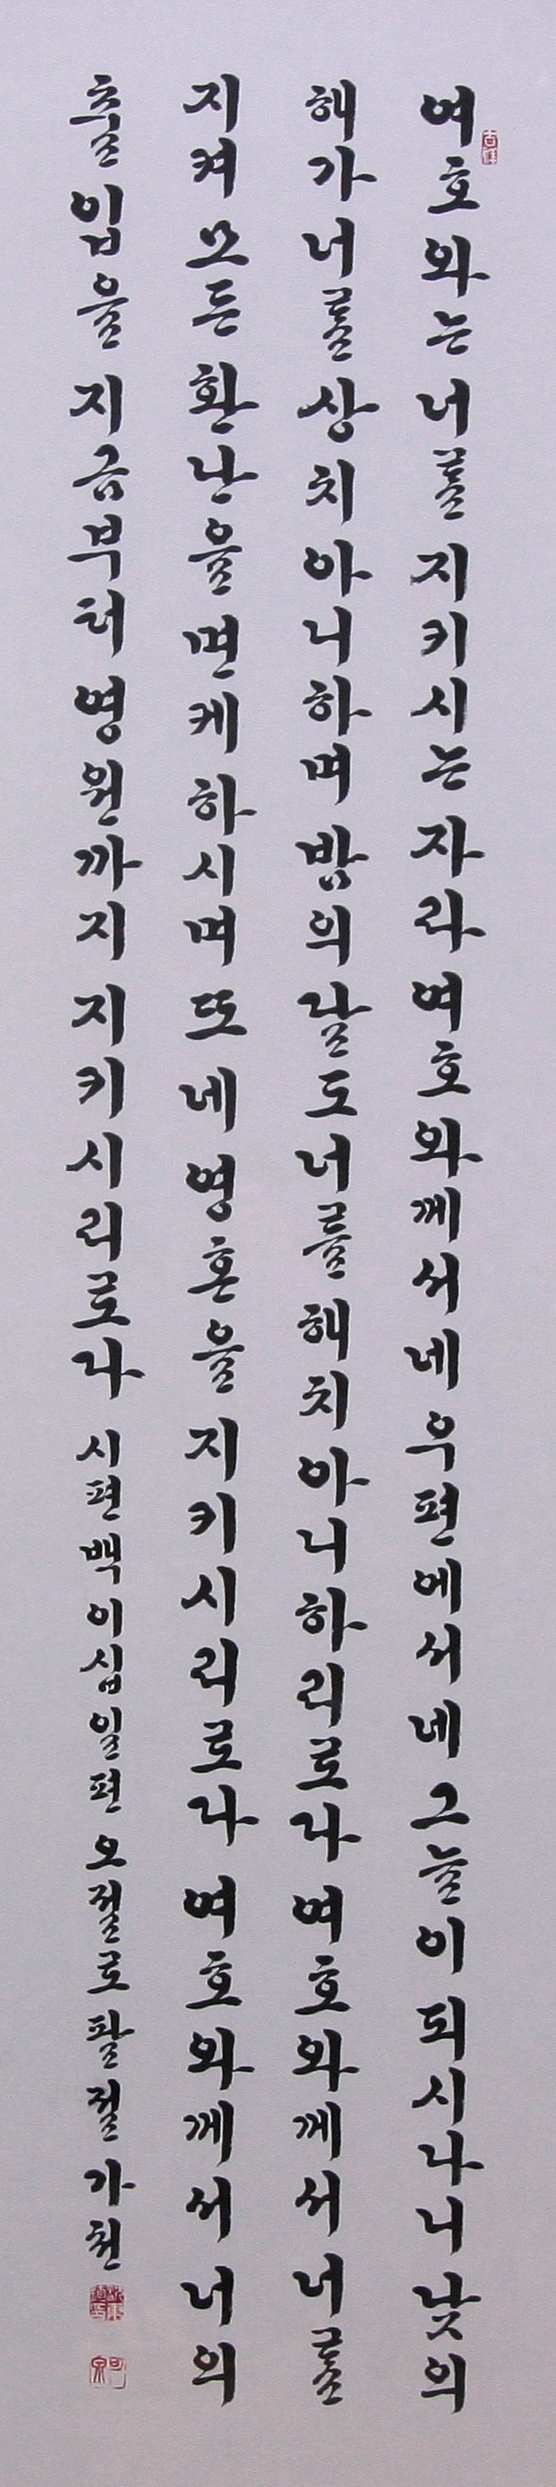 여호와는 너를 지키시는 자라 여호와께서 네 우편에서 네 그늘이 되시나니 낮의
해가 너를 상치 아니하며 밤의 달도 너를 해치 아니하리로다 여호와께서 너를
지켜 모든 환난을 면케 하시며 또 네 영혼을 지키시리로다 여호와께서 너의
출입을 지금부터 영원까지 지키시리로다 시편 백이십일편 오절로 팔절 가천